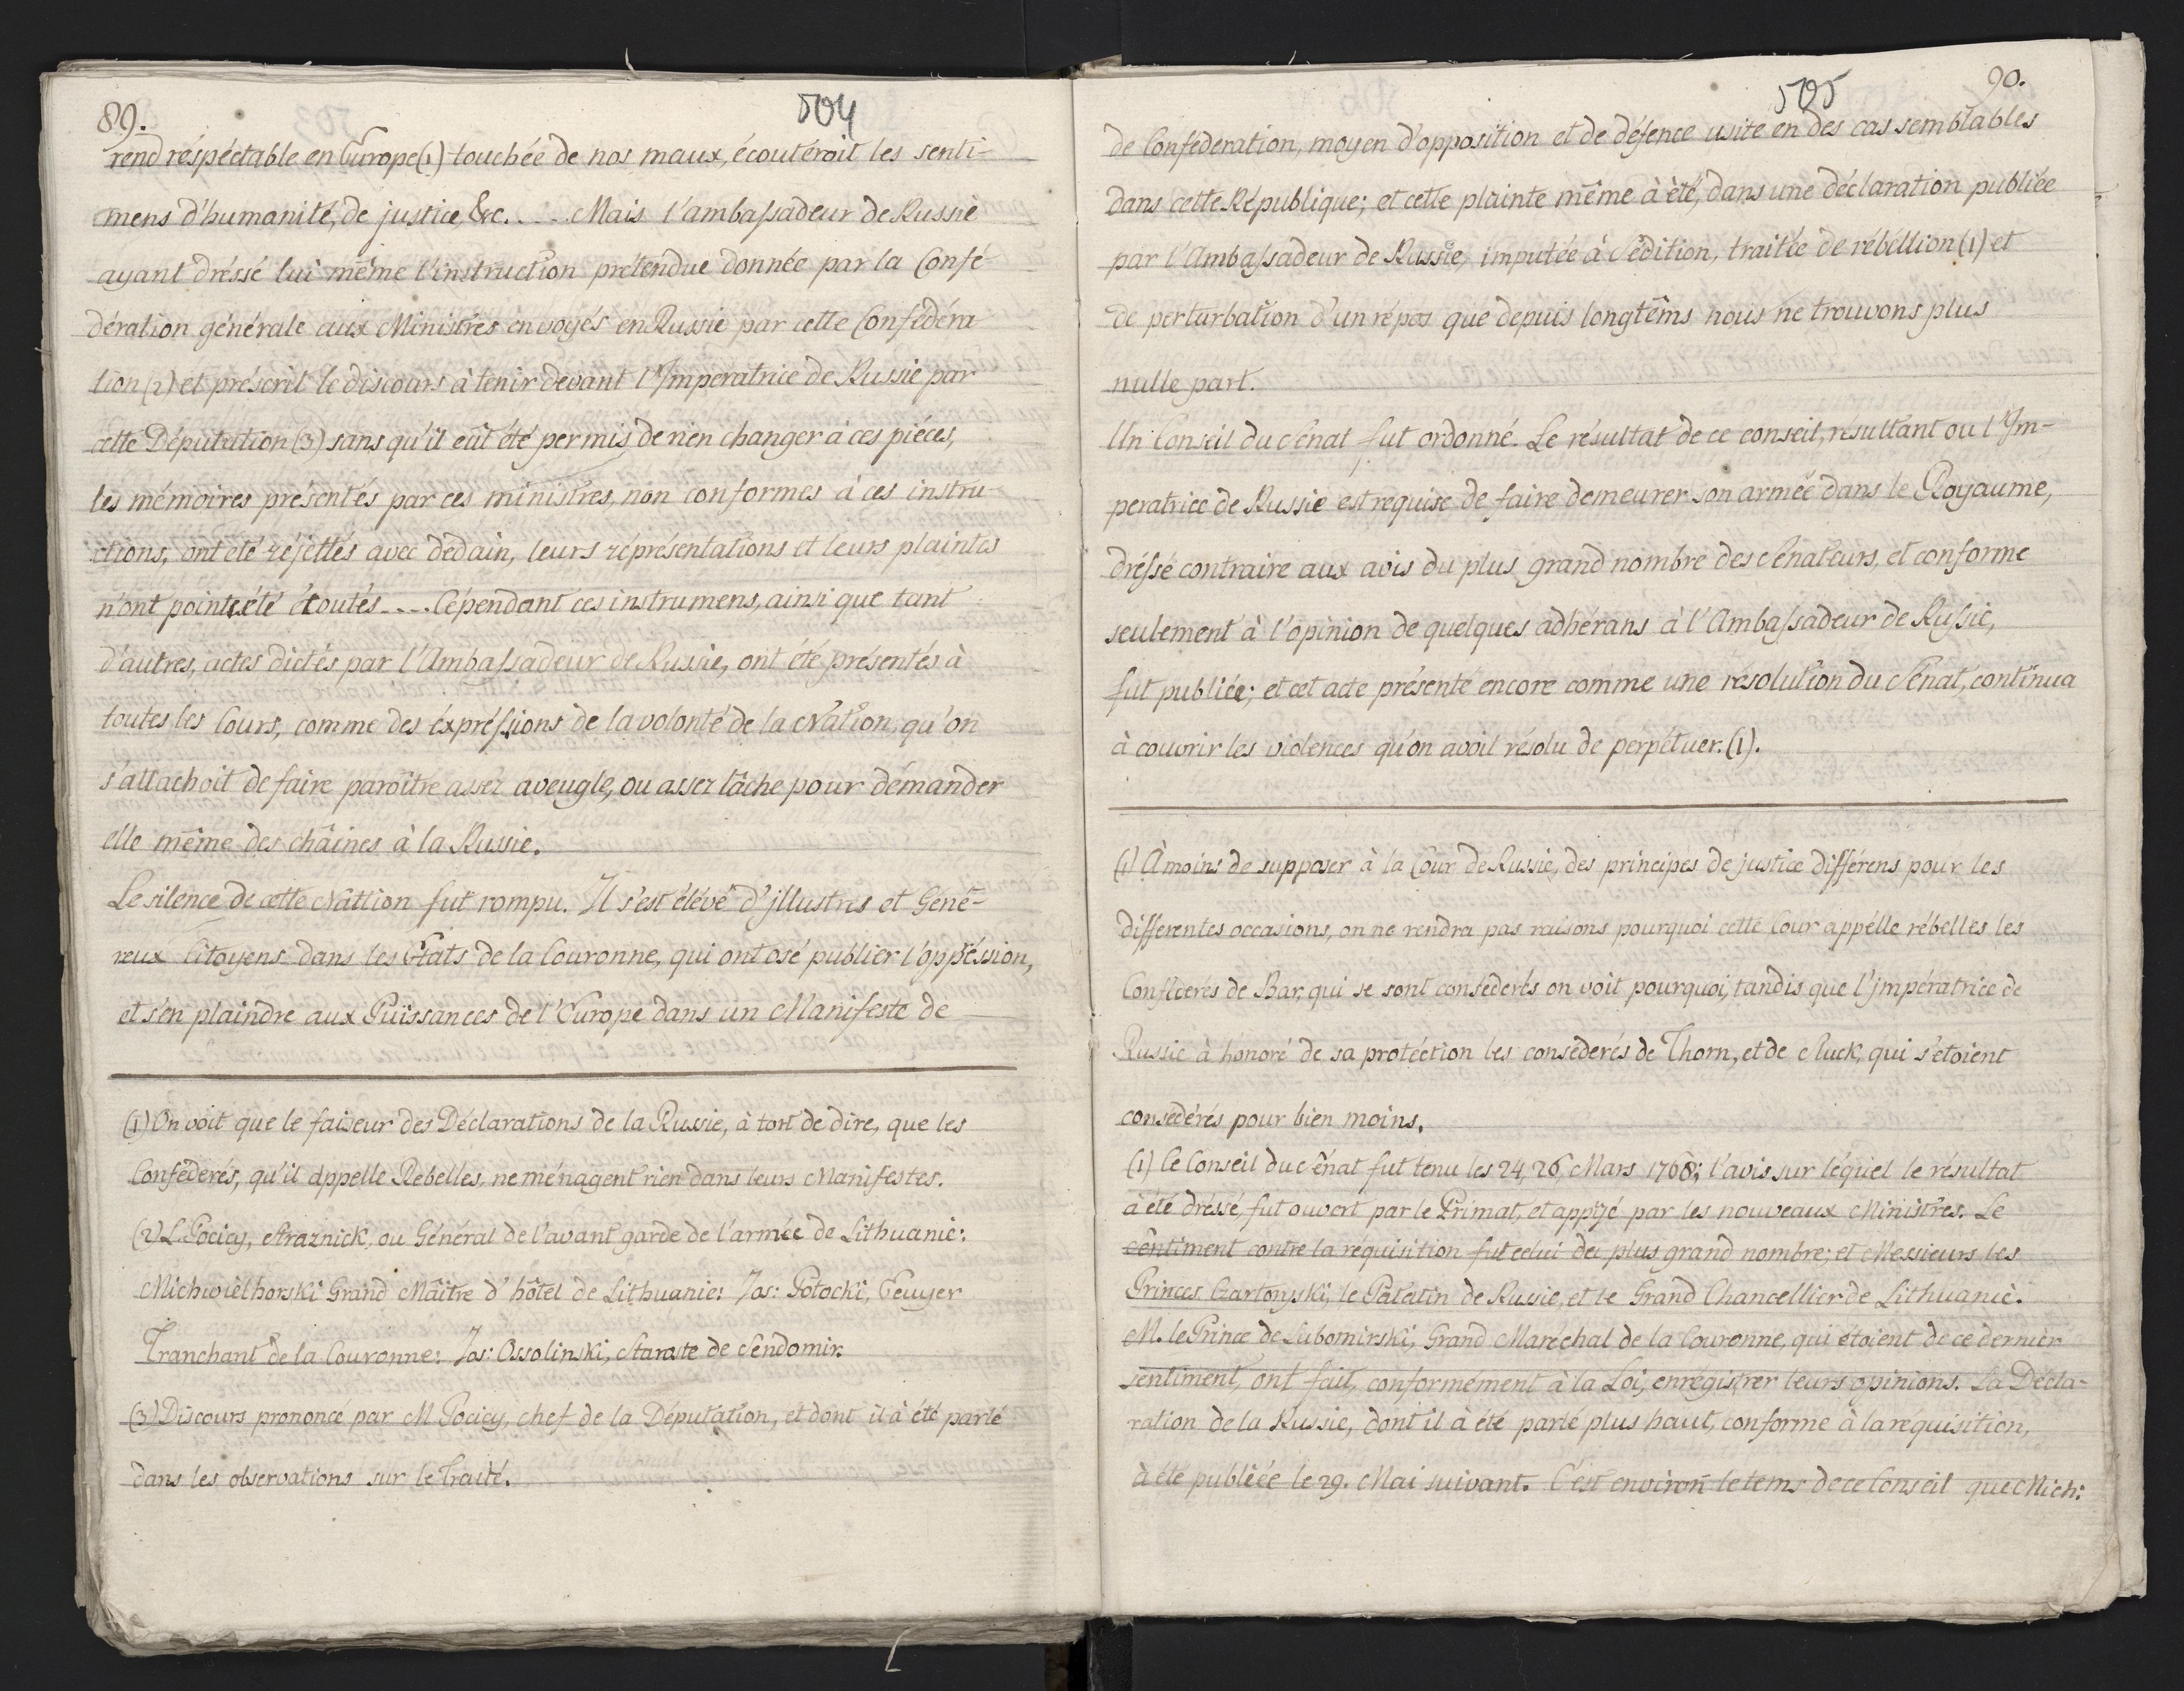 89.
504
rend réspéctable en Europe (1) touchée de nos maux, écoutéroit les senti-
mens d'humanité, de justice, &c. .... Mais l'ambassadeur de Russie
ayant dréssé lui même l'instruction prétendue donnée par la Confé
dération générale aux Ministres envoyés en Russie par cette Confédéra
tion (2) et préscrit le discours à tenir devant l'Imperatrice de Russie par
cette Députation (3) sans qu'il eût été permis de rien changer à ces piéces,
les mémoires présentés par ces ministres, non conformes à ces instru-
ctions, ont été réjettés avec dédain, leurs réprésentations et leurs plaintes
n'ont points été écoutés .... Cépendant ces instrumens, ainsi que tant
d'autres, actes dictés par l'Ambassadeur de Russie, ont été présentés à
toutes les Cours, comme des éxpréssions de la volonté de la Nation, qu'on
s'attachoit de faire paroître assez aveugle, ou assez lâche pour démander
elle même des chaînes à la Russie.
Le silence de cette Nattion fut rompu. Il s'est élévé d'jllustres et Géné-
reux Citoyens dans les Etats de la Couronne, qui ont osé publier l'oppréssion,
et s'en plaindre aux Puissances de l'Europe dans un Manifeste de
(1) On voit que le faiseur des Déclarations de la Russie, à tort de dire, que les
Conféderés, qu'il appelle Rebelles, ne ménagent rien dans leurs Manifestes.
(2) L. Pocicy, Straznick, ou Général de l'avant garde de l'armée de Lithuanie:
Michwielhorski Grand Maître d'hôtel de Lithuanie: Jos: Potocki, Ecuyer
Tranchant de la Couronne: Jos: Ossolinski, Staroste de Sendomir.
(3) Discours prononcé par M Pociey, chef de la Députation, et dont il à été parlé
dans les observations sur le Traité.
505
90.
de Conféderation, moyen d'opposition et de défence usité en des cas semblables
dans cette République; et cette plainte même à été, dans une déclaration publiée
par l'Ambassadeur de Russie, imputée à Sédition, traitée de rébéllion (1) et
de perturbation d'un répos que depuis longtêms nous ne trouvons plus
nulle part.
Un Conseil du Sénat fut ordonné. Le résultat de ce conseil, résultant ou l'Im-
peratrice de Russie est requise de faire demeurer son armée dans le Royaume,
dréssé contraire aux avis du plus grand nombre des Sénateurs, et conforme
seulement à l'opinion de quelques adhérans à l'Ambassadeur de Russie,
fut publiée; et cet acte présenté encore comme une résolution du Sénat, continua
à couvrir les violences qu'on avoit résolu de perpétuer. (1).
(1) À moins de supposer à la Cour de Russie, des principes de justice différens pour les
différentes occasions, on ne rendra pas raisons pourquoi cette Cour appélle rébelles les
de Bar, qui se sont conséderés on voit pourquoi, tandis que l'jmpératrice de
Russie à honoré de sa protéction les conséderés de Thorn, et de Sluck, qui s'etoient
consédérés pour bien moins.
(1) Ce Conseil du Sénat fut tenu les 24, 26, Mars 1768; l'avis sur léquel le résultat
à été dréssé, fut ouvert par le Primat, et appuyé par les nouveaux Ministres. Le
sentiment contre la réquisition fut celui du plus grand nombre; et Messieurs les
Princes Czartoryski, le Palatin de Russie, et le Grand Chancellier de Lithuanie.
M. le Prince de Lubomirski, Grand Maréchal de la Couronne, qui étoient de ce dernier
sentiment, ont fait, conformément à la Loi, enrégistrer leurs opinions. La Décla-
ration de la Russie, dont il à été parlé plus haut, conforme à la réquisition,
à été publiée le 29. Mai suivant. C'est environ le tems de ce Conseil que Mich: